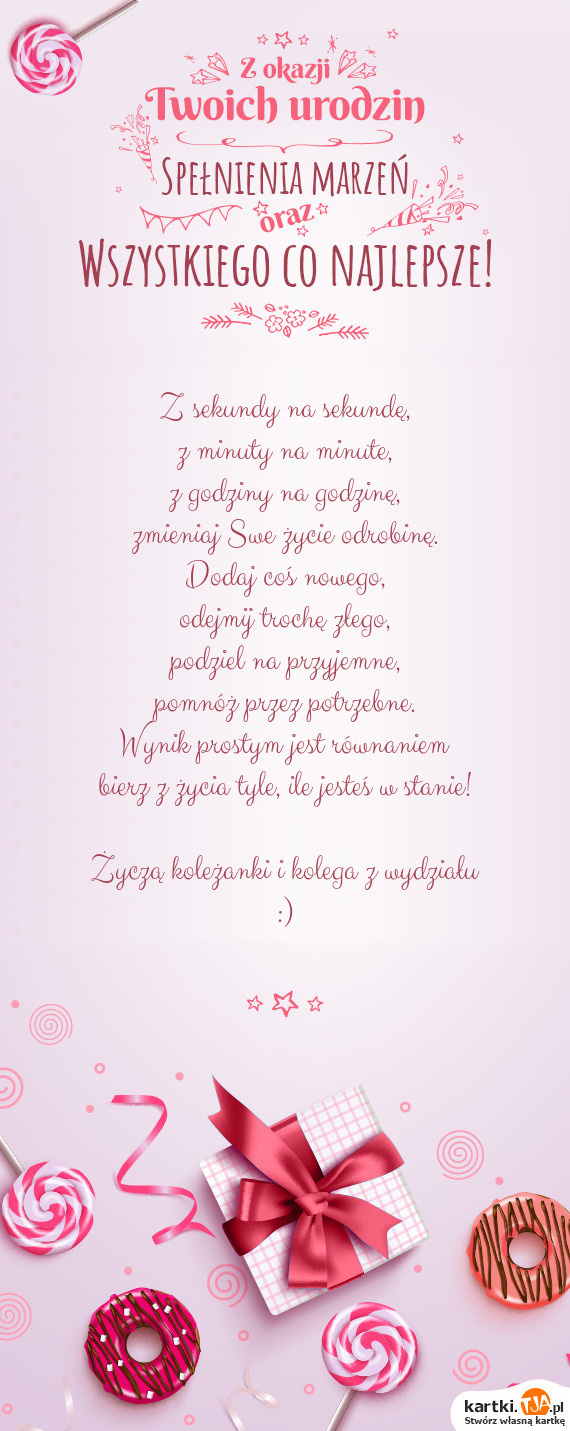 Z okazji
Twoich urodzin
Spełnienia marzeń
oraz
Wszystkiego co najlepsze!
Z sekundy na sekundę,
z minuty na minute,
z godziny na godzinę,
zmieniaj Swe życie odrobinę.
Dodaj coś nowego,
odejmij trochę złego,
podziel na przyjemne,
pomnóż przez potrzebne.
Wynik prostym jest równaniem
bierz z życia tyle, ile jesteś w stanie!
Życzą koleżanki i kolega z wydziału
:)
kartki.TJA.pl
Stwórz własną kartkę